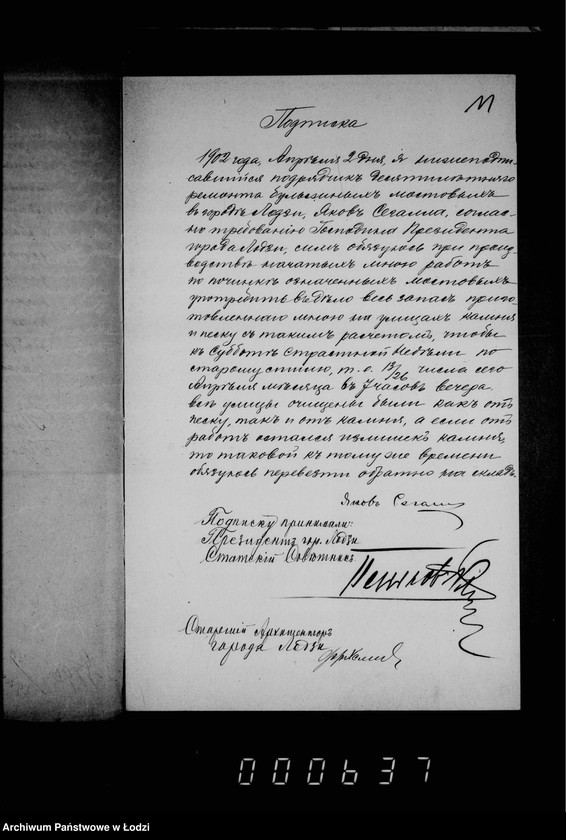 11
Подписка
1902 года, Апрѣля 2 дня, я нижеподпи-
савшійся подрядчикъ десятилѣтняго
ремонта булыжныхъ мостовыхъ
въ городѣ Лодзи, Яковъ Сегалла, соглас-
но требованію Господина Президента
города Лодзи, симъ обязуюсь при произ-
водствѣ начатыхъ мною работъ
по починкѣ означенныхъ мостовыхъ
употребить въ дѣло весь запасъ приго-
товленнаго мною на улицахъ камня
и песку съ такимъ расчетомъ, чтобы
къ Субботѣ Страстной Недѣли по
старому стилю, т. е. 13/26 числа сего
Апрѣля мѣсяца въ 7 часовъ вечера
всѣ улицы очищены были какъ отъ
песку, такъ и отъ камня, а если отъ
работъ остался излишекъ камня,
то таковой къ тому же времени
обязуюсь перевезти обратно на складъ.
Яковъ Сегалла
Подписку принимали:
Президентъ гор. Лодзи
Статскій Совѣтникъ
Старшій Архитекторъ
города Лодзи
000637
Archiwum Państwowe w Łodzi